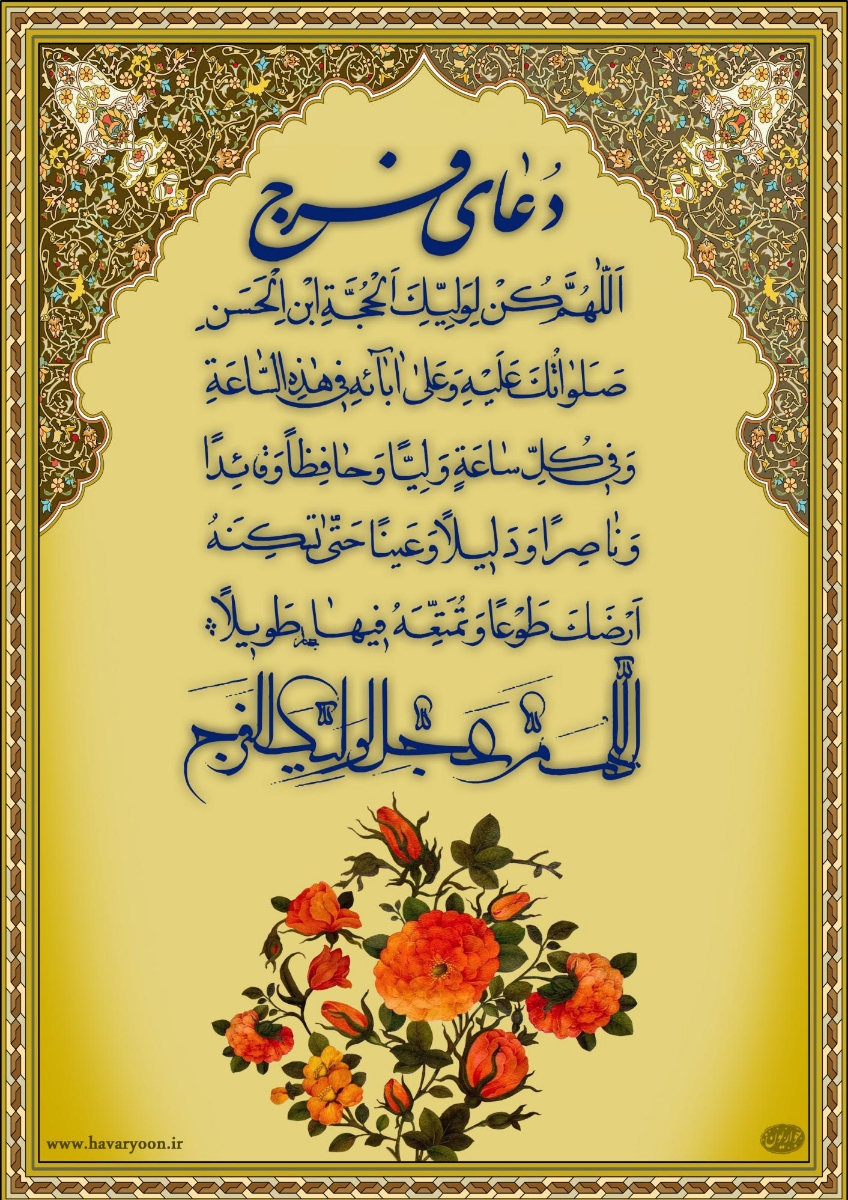 دُعٰای فرج
اَللّٰهُمَّ كُنْ لِوَلِيِّكَ اَلْحُجَّةِ ابْنِ اِلْحَسَنِ
صَلَوٰاتُكَ عَلَيْهِ وَعَلىٰ اٰبٰائِهِ فِي هٰذِهِ السّٰاعَةِ
وَفِي كُلِّ سٰاعَةٍ وَلِيًّا وَحٰافِظاً وَقٰائِدًا
وَنٰاصِرًا وَدَلِيلاً وَعَيْنًا حَتّٰى تُسْكِنَهُ
اَرْضَكَ طَوْعًا وَتُمَتِّعَهُ فِيهٰا طَوِيلاً
اللّهم عجل لوليك الفرج
www.havaryoon.ir
حواریون